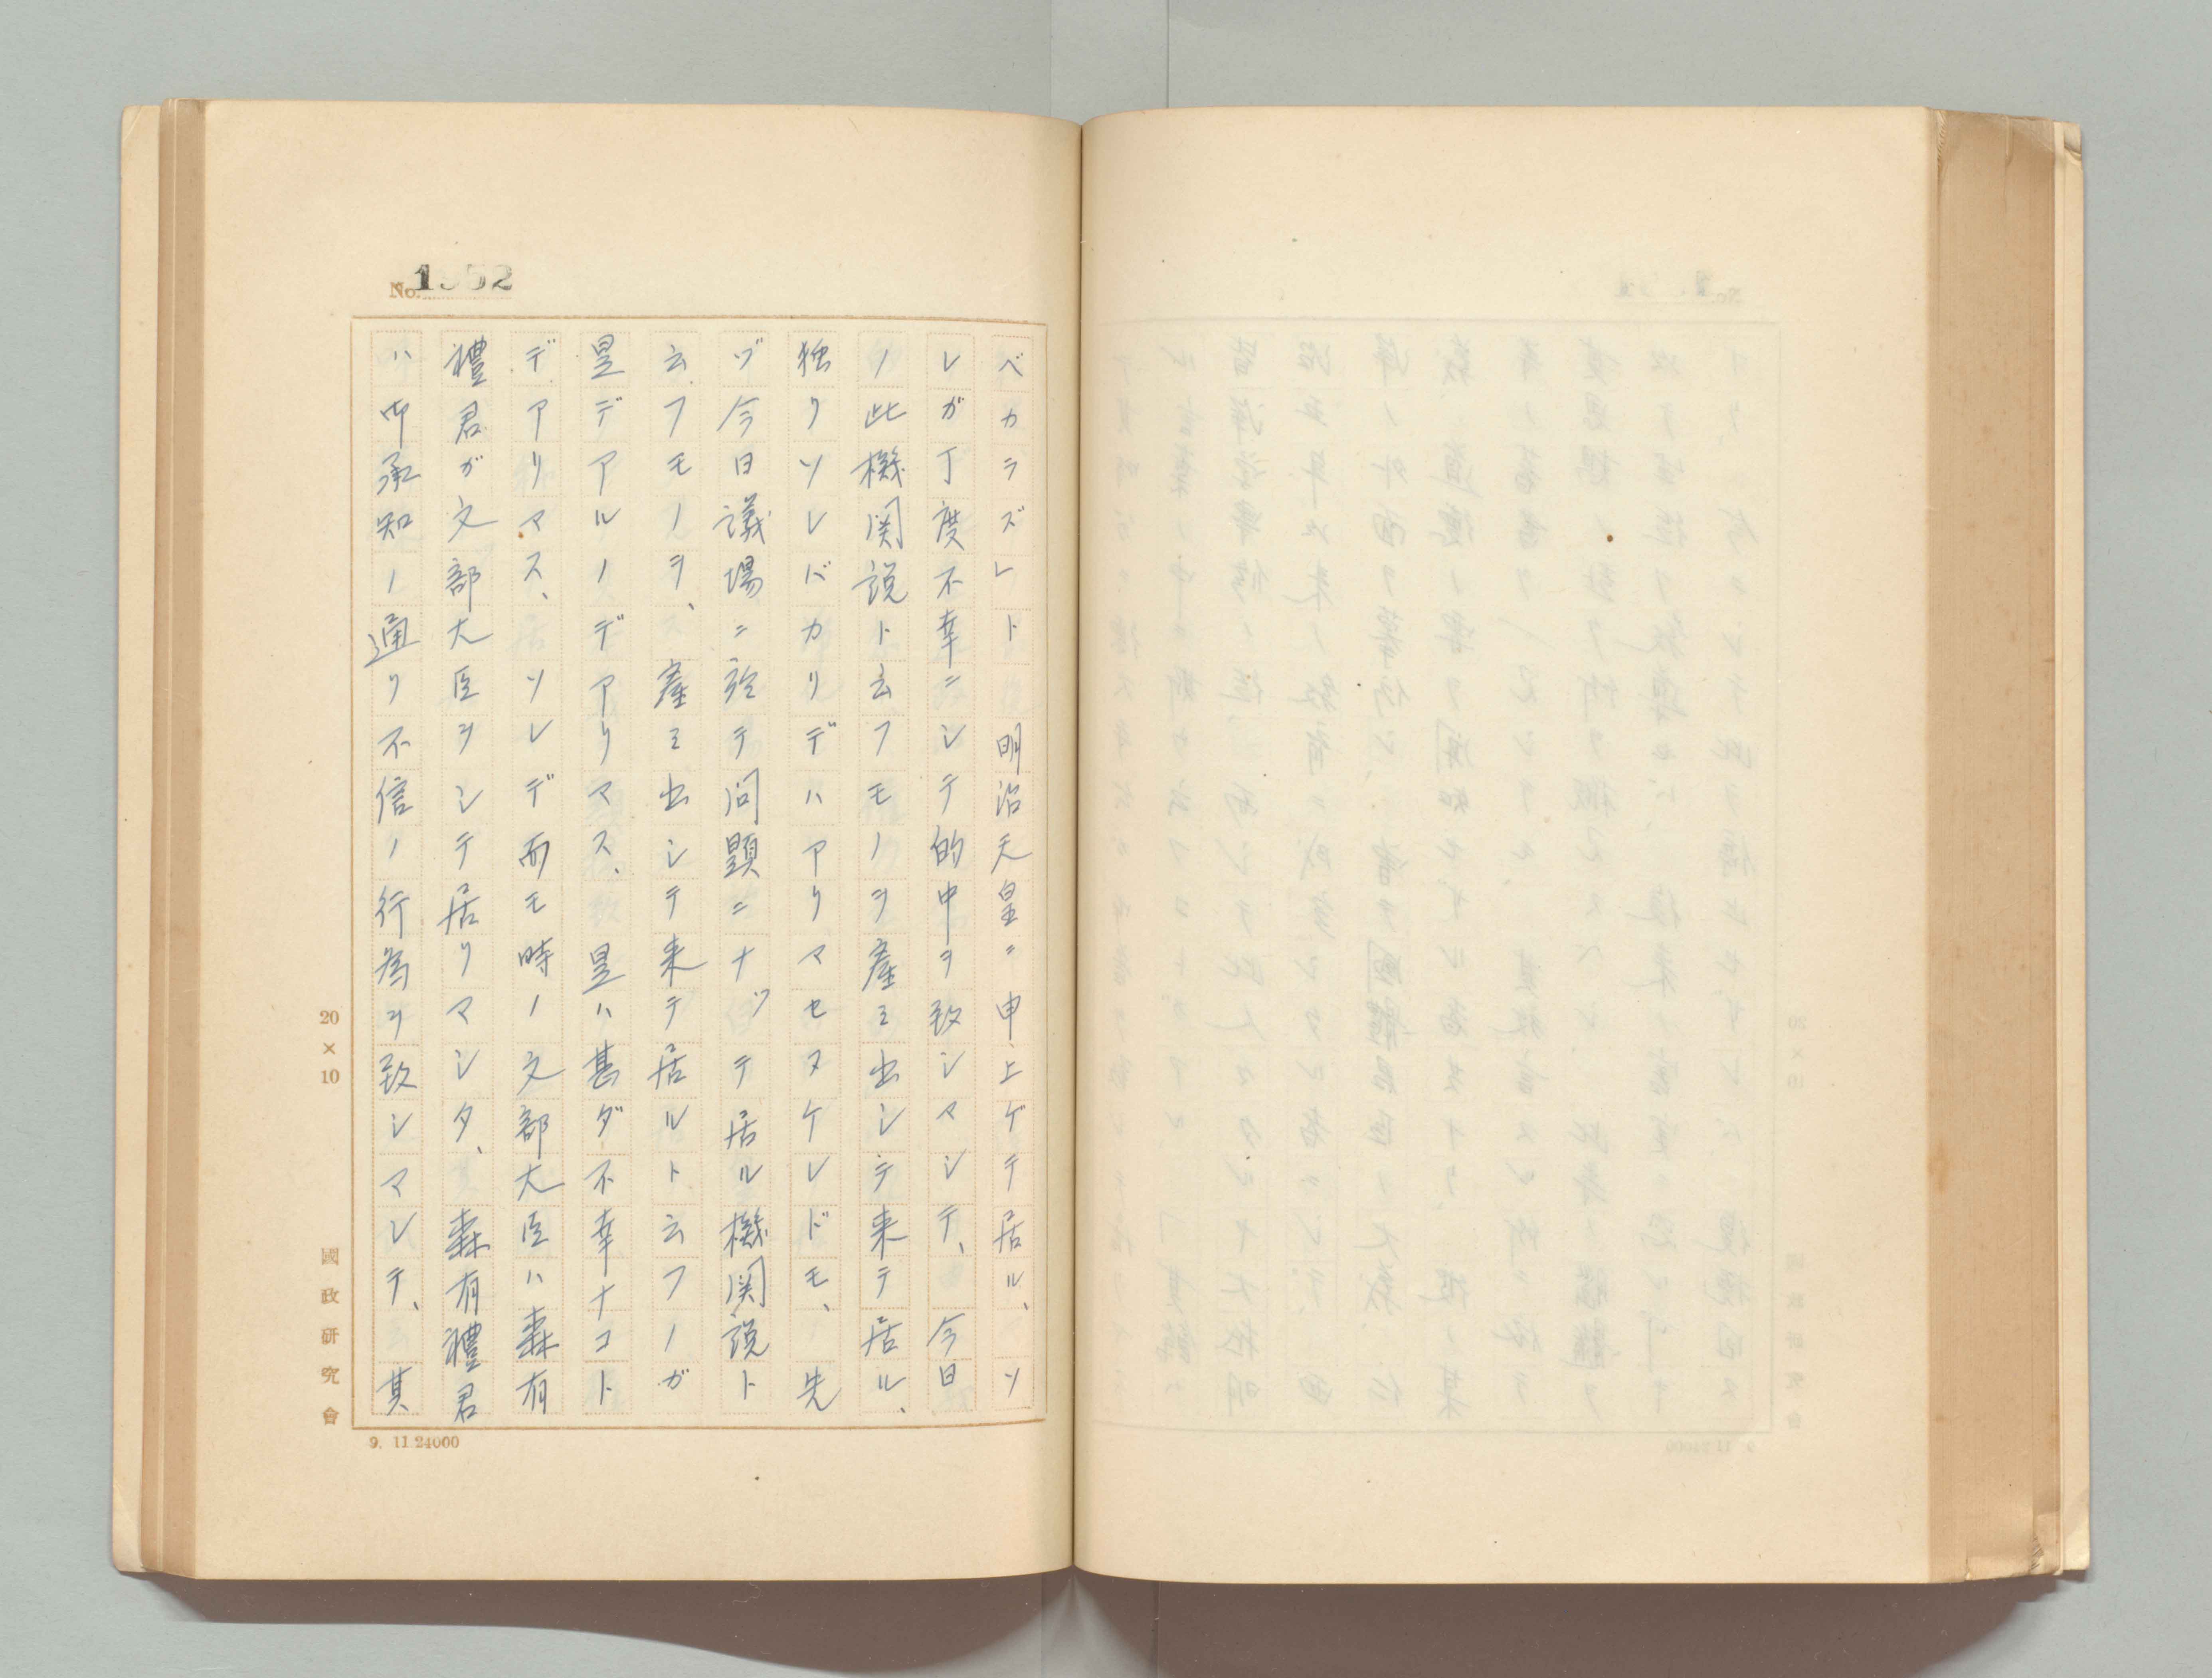 No. 1952
ベカラズレト 明治天皇ニ申上ゲテ居ル、ソ
レガ丁度不幸ニシテ的中ヲ致シマシテ、今日
ノ此機関説ト云フモノヲ産ミ出シテ来テ居ル、
独リソレバカリデハアリマセヌケレドモ、先
ヅ今日議場ニ於テ問題ニナッテ居ル機関説ト
云フモノヲ、産ミ出シテ来テ居ルト云フノガ
是デアルノデアリマス、是ハ甚ダ不幸ナコト
デアリマス、ソレデ而モ時ノ文部大臣ハ森有
禮君ガ文部大臣ヲシテ居リマシタ、森有禮君
ハ御承知ノ通リ不信ノ行為ヲ致シマシテ、其
20×10
國政研究會
9. 11.24000